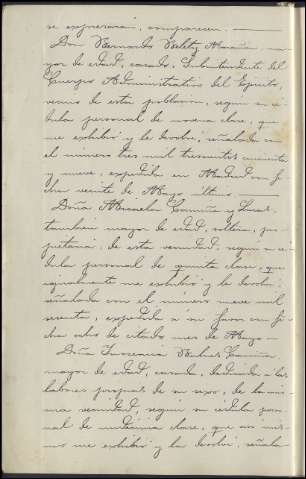 se expresará, comparecen
Don Bernardo ma-
yor de edad, casado, Subintendente del
Cuerpo Administrativo del Ejército,
vecino de esta poblacion, segun su cé-
dula personal de novena clase, que
me exhibe y le devolví, señalada con
el número tres mil trescientos cincuenta
y nueve, expedida en Madrid con fe-
cha veinte de Mayo último
Doña Micaela y
tambien mayor de edad, soltera, pro-
pietaria, de esta vecindad, segun su cé-
dula personal de quinta clase, que
igualmente me exhibe y la devolví,
señalada con el número nueve mil
expedida á su favor con fe-
cha ocho de citado mes de Mayo
Doña
mayor de edad, casada, dedicada á las
labores propias de su sexo, de la mis-
ma vecindad, segun su cédula perso-
nal de undécima clase, que asi mis-
mo me exhibe y la devolví, señala-